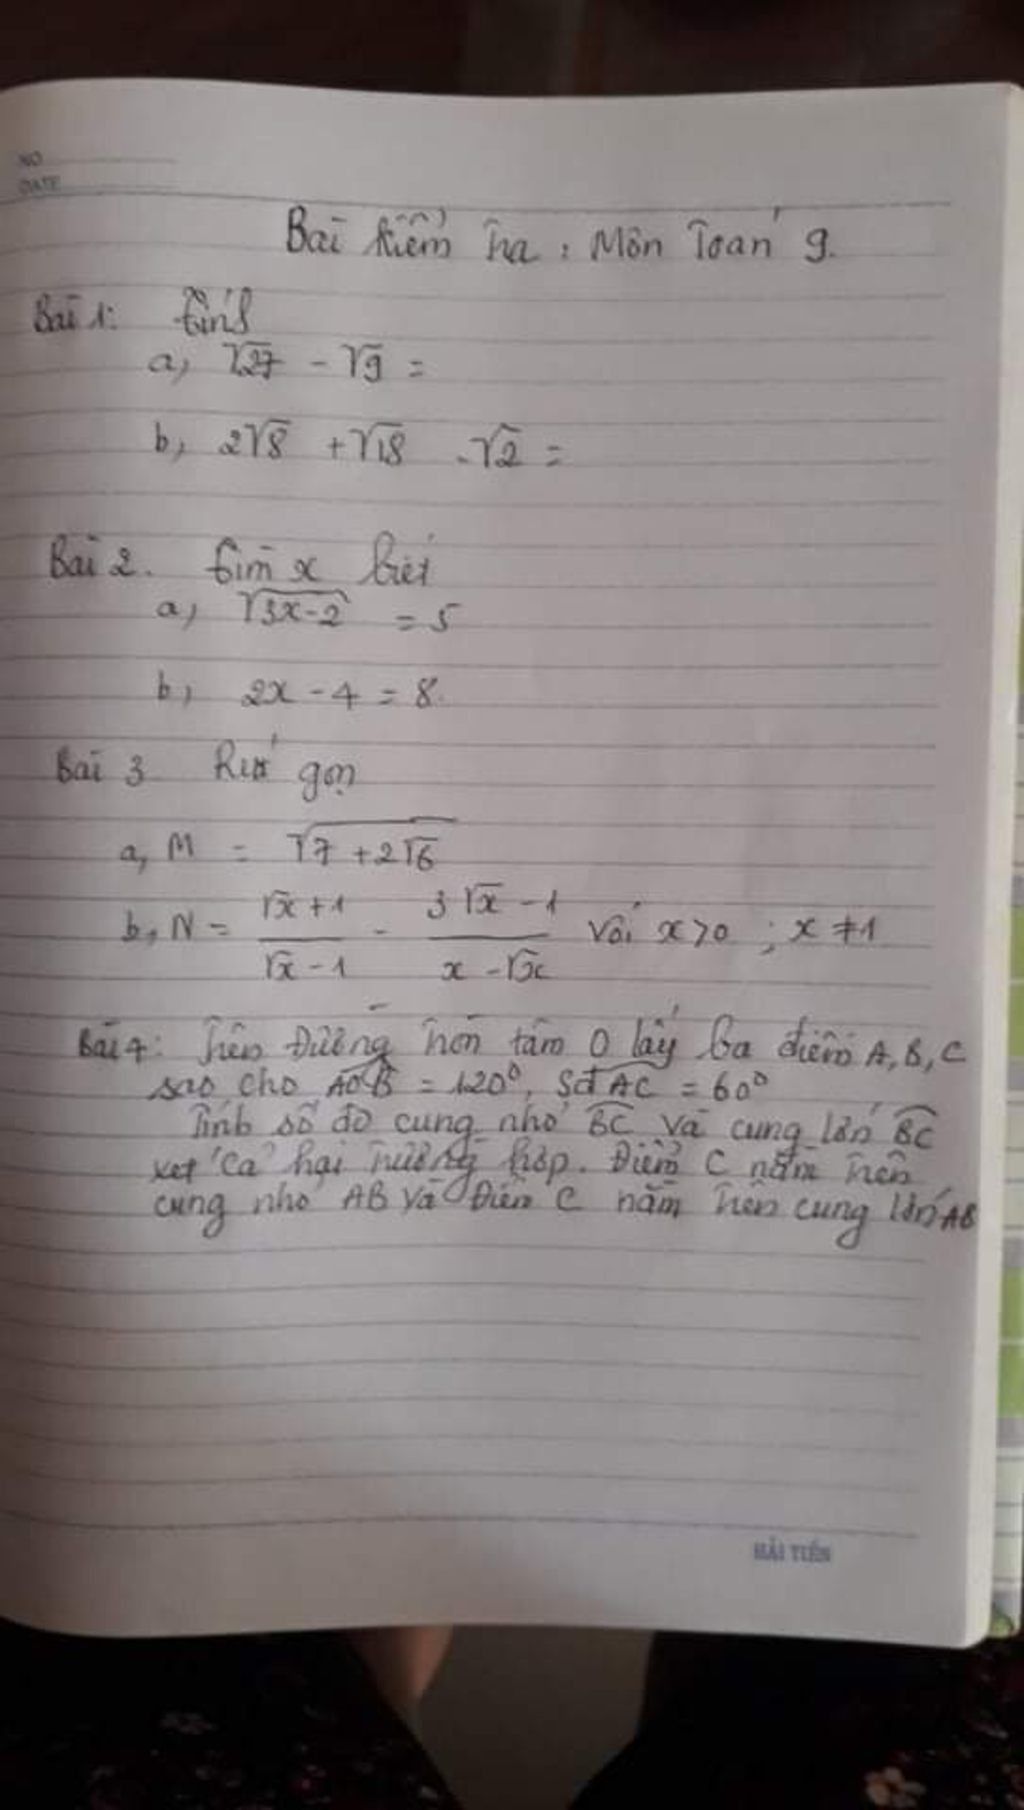 NO
DATE
Bài kiểm tra : Môn Toán 9.
Bài 1: tính
a, √27 - √9 =
b, 2√8 + √18 - √2 =
Bài 2. tìm x biết
a, √3x-2 = 5
b, 2x - 4 = 8.
Bài 3 Rút gọn
a, M = √7 + 2√6
b, N = √x + 1 / √x - 1 - 3√x - 1 / x - √x với x > 0 ; x ≠ 1
Bài 4: Trên Đường tròn tâm O lấy ba điểm A, B, C
sao cho AOB = 120°, Sđ AC = 60°
Tính số đo cung nhỏ BC và cung lớn BC
xét cả hai trường hợp. Điểm C nằm trên
cung nhỏ AB và Điểm C nằm trên cung lớn AB
HẢI TIẾN